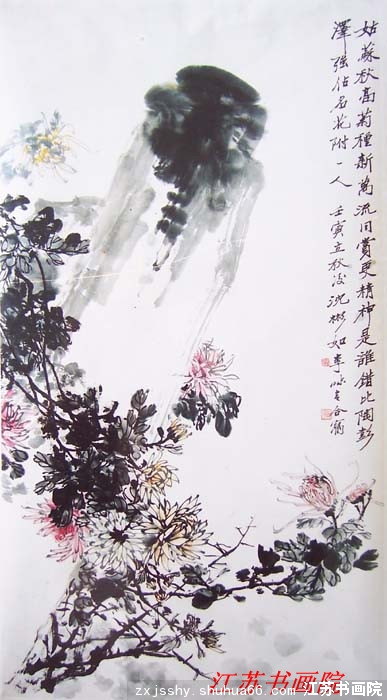 姑蘇秋高菊種新萬流同賞更精神是誰錯比陶彭
澤強佔名花附一人 壬寅立秋後沈彬如李味青合
江苏书画院
zxjsshy.shuhua66.com 江苏书画院